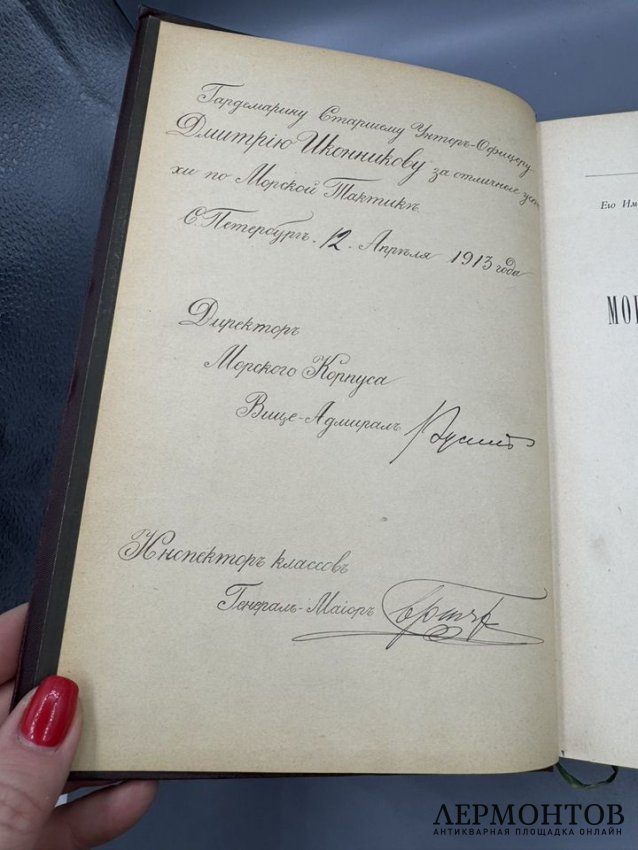 Гардемарину Старшему Унтеръ-Офицеру
Дмитрію Иконникову за отличные успѣ-
хи по Морской Тактикѣ.
С.Петербургъ. 12 Апрѣля 1913 года
Директоръ
Морского Корпуса
Вице-Адмиралъ Русинъ
Инспекторъ классовъ
Генералъ-Маіоръ
Его Им
МО
ЛЕРМОНТОВ
АНТИКВАРНАЯ ПЛОЩАДКА ОНЛАЙН